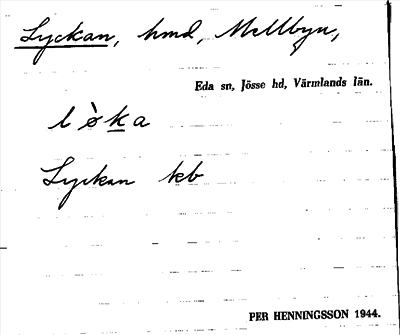 Lyckan, hmd, Mellbyn,
Eda sn, Jösse hd, Värmlands län.
l ø̀ k a
Lyckan kb
PER HENNINGSSON 1944.